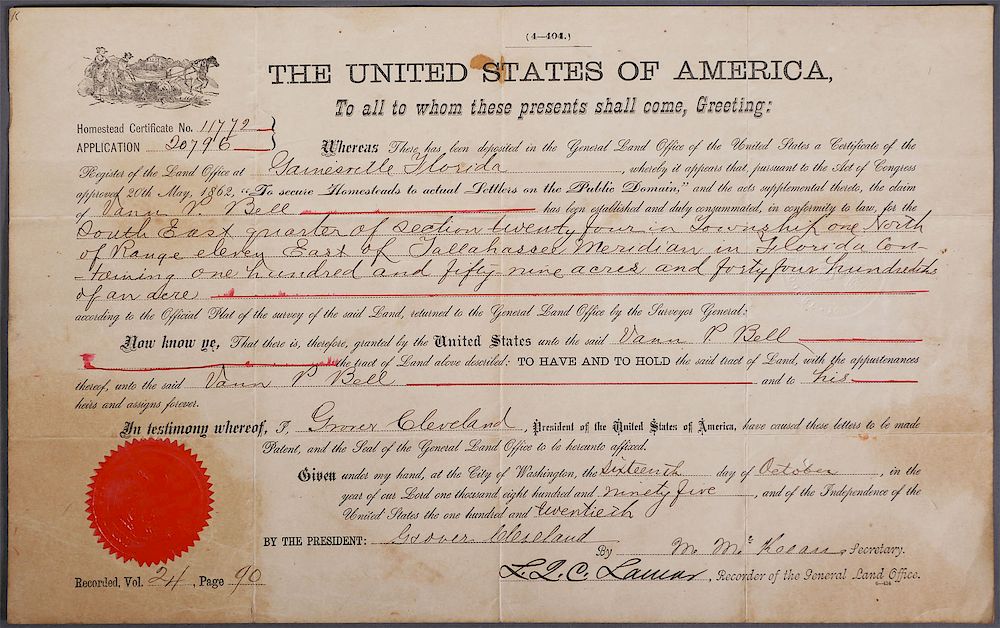 K
(4—404.)
THE UNITED STATES OF AMERICA,
To all to whom these presents shall come, Greeting:
Homestead Certificate No. 11772
APPLICATION 20796
Whereas There has been deposited in the General Land Office of the United States a Certificate of the
Register of the Land Office at Gainesville Florida, whereby it appears that, pursuant to the Act of Congress
approved 20th May, 1862, “To secure Homesteads to actual Settlers on the Public Domain,” and the acts supplemental thereto, the claim
of Vann P. Bell has been established and duly consummated, in conformity to law, for the
South East quarter of Section twenty four in Township one North
of Range eleven East of Tallahassee Meridian in Florida con-
-taining one hundred and fifty nine acres and forty four hundredths
of an acre
according to the Official Plat of the survey of the said Land, returned to the General Land Office by the Surveyor General:
Now know ye, That there is, therefore, granted by the United States unto the said Vann P. Bell
the tract of Land above described: TO HAVE AND TO HOLD the said tract of Land, with the appurtenances
thereof, unto the said Vann P Bell and to his
heirs and assigns forever.
In testimony whereof, I, Grover Cleveland, President of the United States of America, have caused these letters to be made
Patent, and the Seal of the General Land Office to be hereunto affixed.
Given under my hand, at the City of Washington, the sixteenth day of October, in the
year of our Lord one thousand eight hundred and ninety five, and of the Independence of the
United States the one hundred and twentieth
BY THE PRESIDENT: Grover Cleveland
By M McKean, Secretary.
L. Q. C. Lamar, Recorder of the General Land Office.
Recorded, Vol. 24, Page 90
6—404